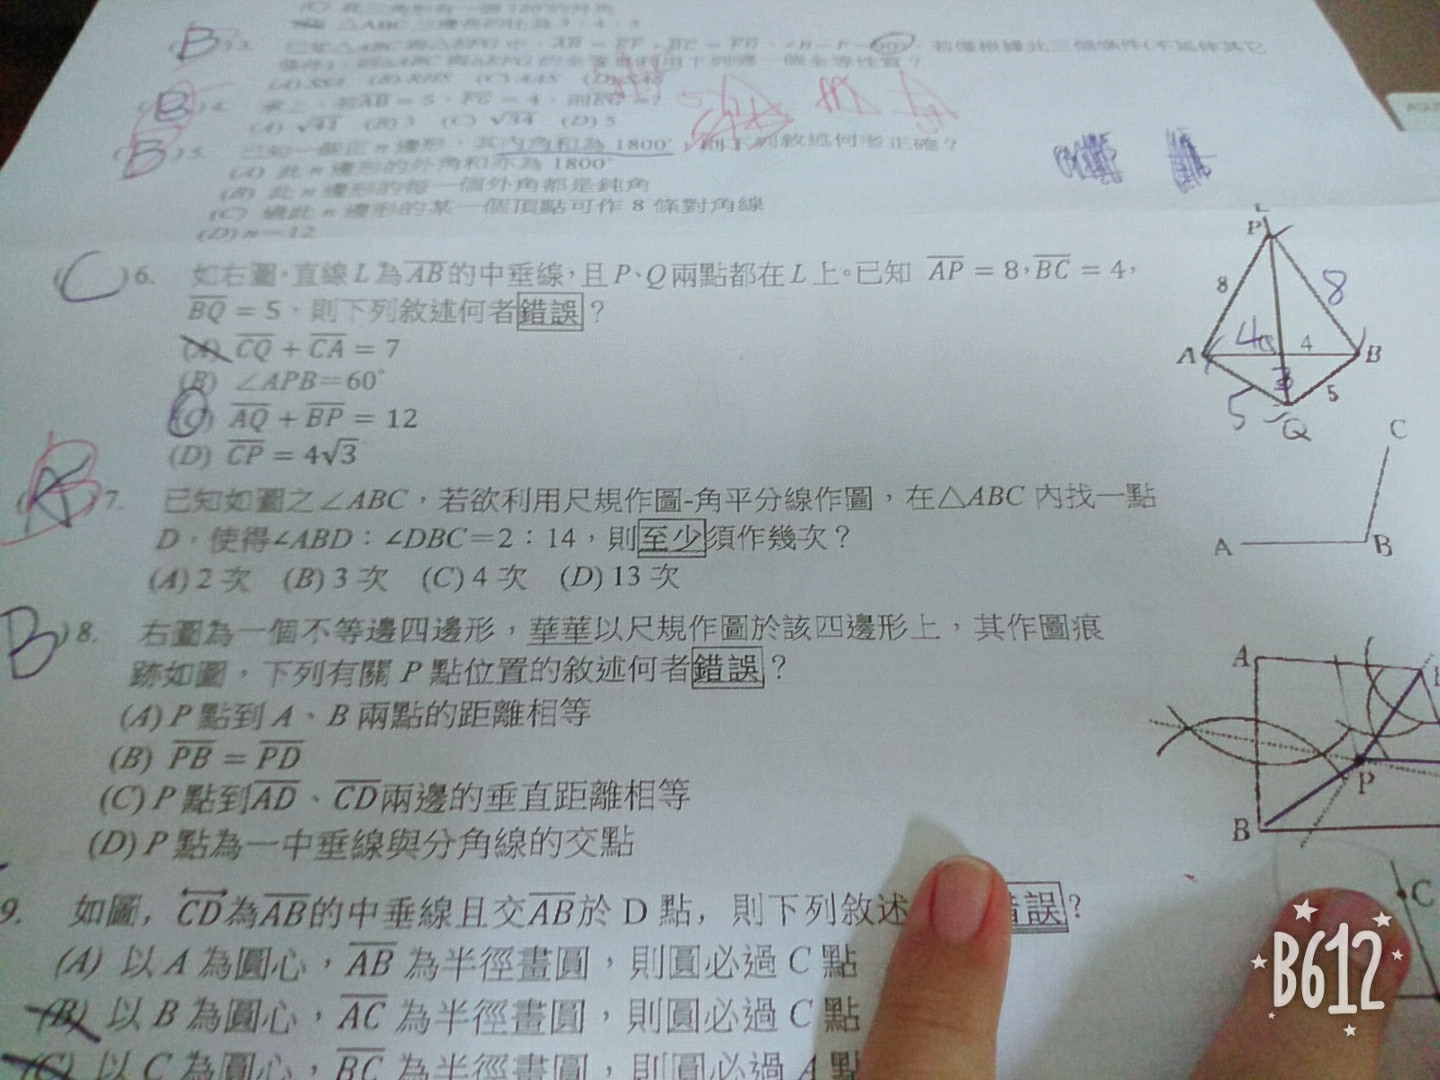 (A) SSA (B) RHS (C) AAS
(B) 4. 承上,若AB = 5,FG = 4,則EG = ?
(A) √41 (B) 3 (C) √34 (D) 5
(B) 5. 已知一個正 n 邊形,其內角和為 1800°,則下列敘述何者正確?
(A) 此 n 邊形的外角和亦為 1800°
(B) 此 n 邊形的每一個外角都是鈍角
(C) 過此 n 邊形的某一個頂點可作 8 條對角線
(D) n = 12
(C) 6. 如右圖,直線 L 為 AB 的中垂線,且 P、Q 兩點都在 L 上。已知 AP = 8,BC = 4,
BQ = 5,則下列敘述何者錯誤?
(A) CQ + CA = 7
(B) ∠APB=60°
(C) AQ + BP = 12
(D) CP = 4√3
L
P
8
8
A
4
4
B
3
5
5
Q
7. 已知如圖之∠ABC,若欲利用尺規作圖-角平分線作圖,在△ABC 內找一點
D,使得∠ABD:∠DBC=2:14,則至少須作幾次?
(A) 2 次 (B) 3 次 (C) 4 次 (D) 13 次
C
A
B
(B) 8. 右圖為一個不等邊四邊形,華華以尺規作圖於該四邊形上,其作圖痕
跡如圖,下列有關 P 點位置的敘述何者錯誤?
(A) P 點到 A、B 兩點的距離相等
(B) PB = PD
(C) P 點到AD、CD兩邊的垂直距離相等
(D) P 點為一中垂線與分角線的交點
A
P
B
9. 如圖,CD為AB的中垂線且交AB於 D 點,則下列敘述 錯誤?
(A) 以 A 為圓心,AB 為半徑畫圓,則圓必過 C 點
(B) 以 B 為圓心,AC 為半徑畫圓,則圓必過 C 點
(C) 以 C 為圓心,BC 為半徑畫圓,則圓必過 A 點
C
B612